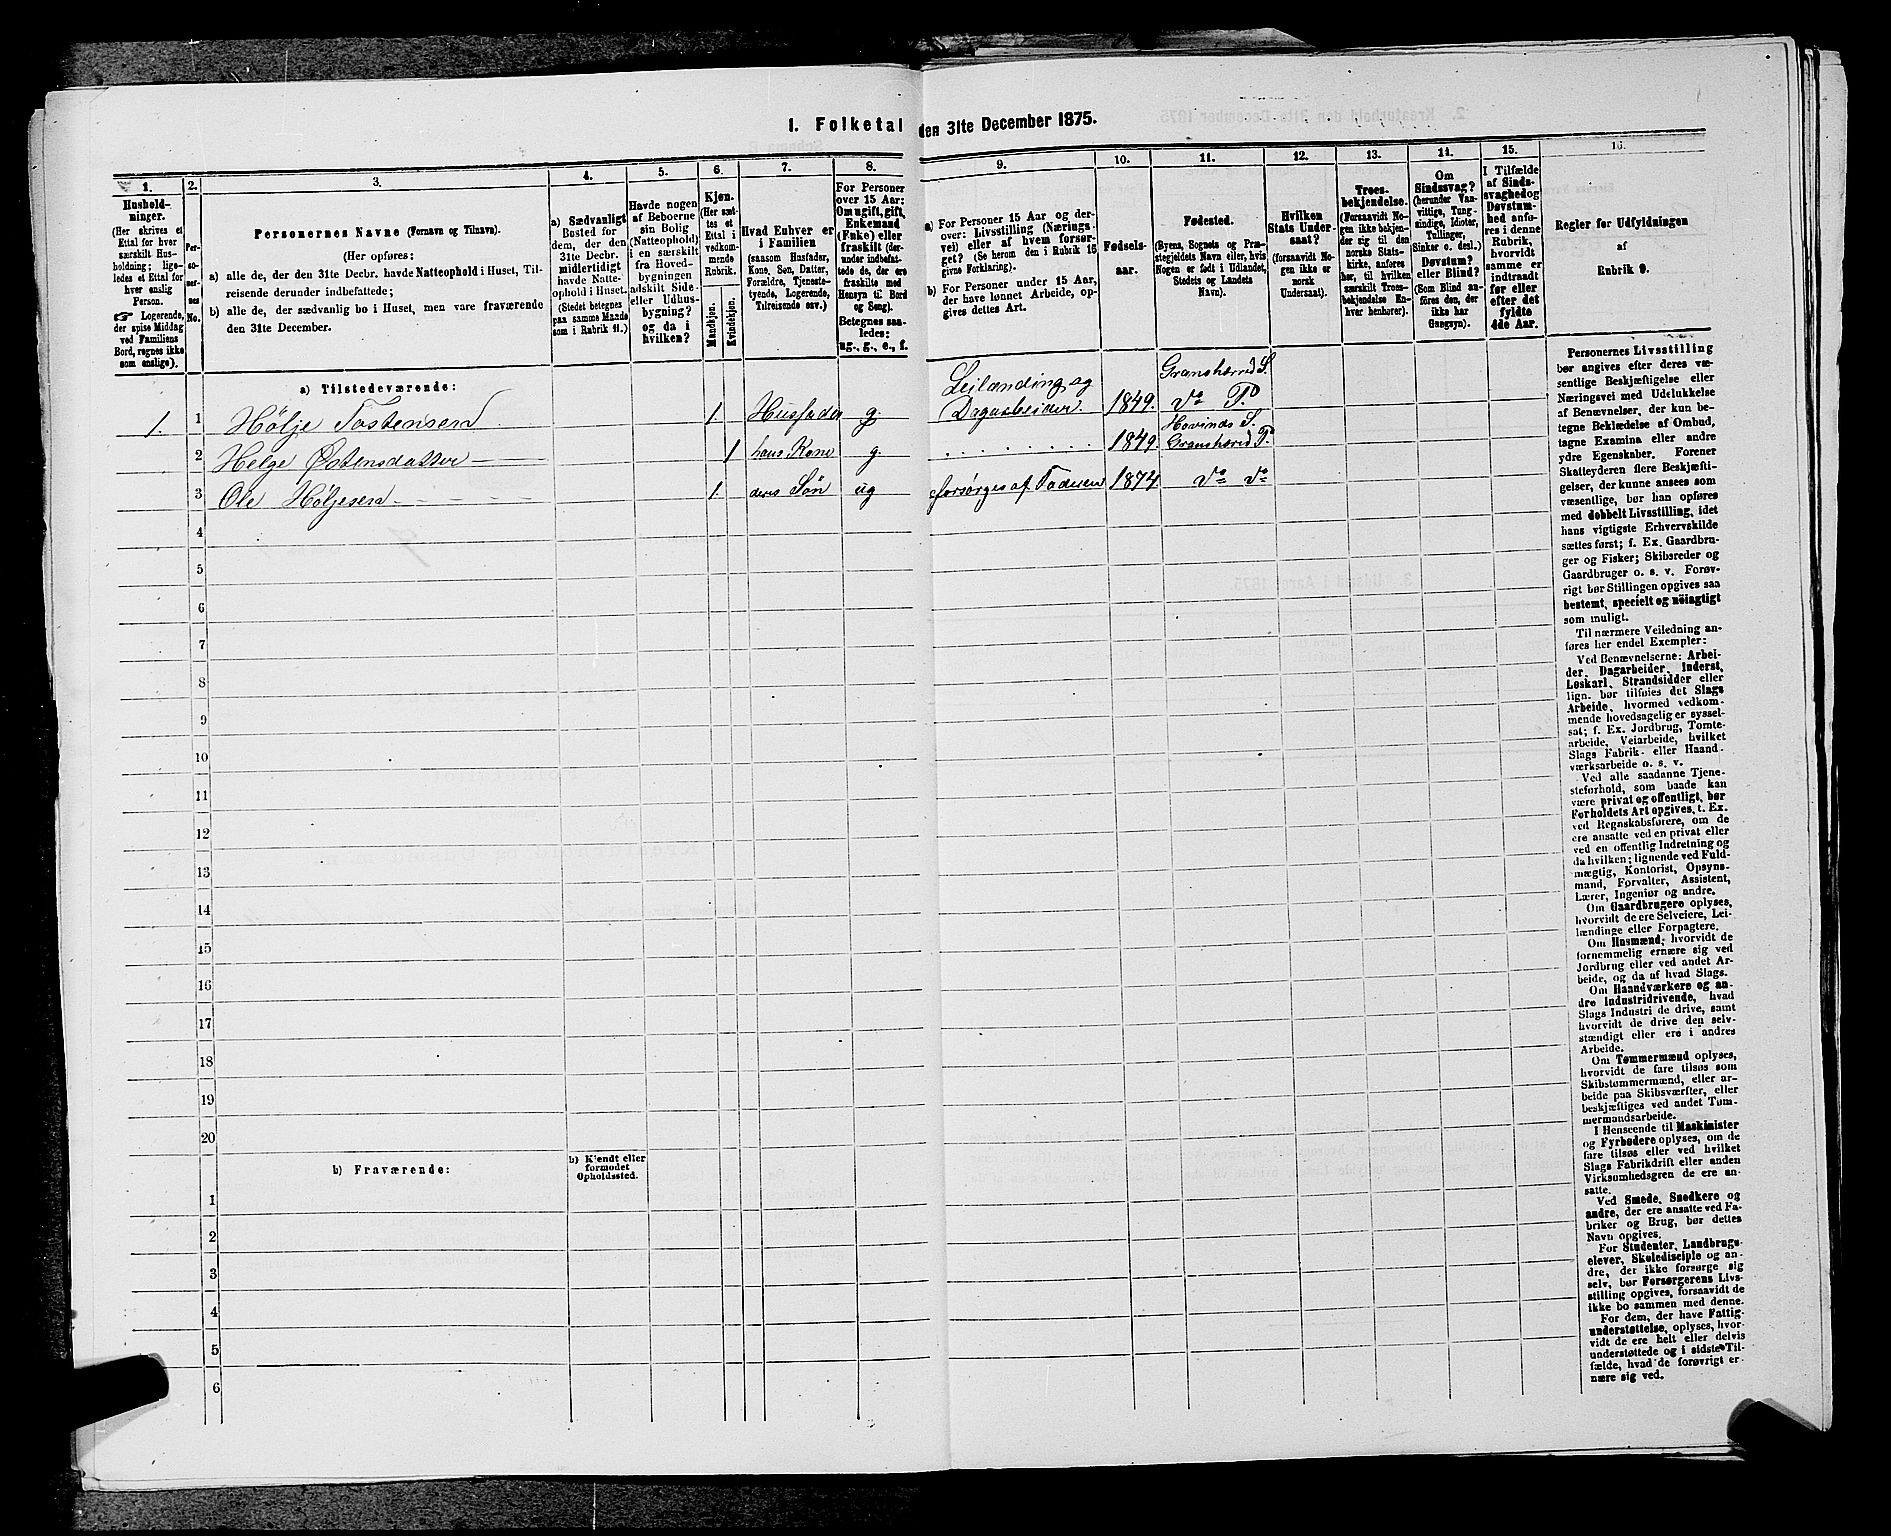 I. Folketal den 31te December 1875.
1.
Hushold-
ninger.
(Her skrives et
Ettal for hver
særskilt Hus-
holdning; lige-
ledes et Ettal for
hver enslig
Person.
☞ Logerende,
der spise Middag
ved Familiens
Bord, regnes ikke
som enslige).
2.
Per-
so-
ner-
nes
No.
3.
Personernes Navne (Fornavn og Tilnavn).
(Her opføres:
a) alle de, der den 31te Decbr. havde Natteophold i Huset, Til-
reisende derunder indbefattede;
b) alle de, der sædvanlig bo i Huset, men vare fraværende
den 31te December.
4.
a) Sædvanligt
Bosted for
dem, der den
31te Decbr.
midlertidigt
havde Natte-
ophold i Huset.
(Stedet betegnes
paa samme Maade
som i Rubrik 11.)
5.
Havde nogen
af Beboerne
sin Bolig
(Natteophold)
i en særskilt
fra Hoved-
bygningen
adskilt Side-
eller Udhus-
bygning?
og da i
hvilken?
6.
Kjøn.
(Her sæt-
tes et
Ettal i
vedkom-
mende
Rubrik.
Mandkjøn.
Kvindekjøn.
7.
Hvad Enhver er
i Familien
(saasom Husfader,
Kone, Søn, Datter,
Forældre, Tjeneste-
tyende, Logerende,
Tilreisende osv.)
8.
For Personer
over 15 Aar:
Om ugift, gift,
Enkemand
(Enke) eller
fraskilt (der-
under indbefat-
tede de, der ere
fraskilte med
Hensyn til Bord
og Seng).
Betegnes saa-
ledes:
ug., g., e., f.
9.
a) For Personer 15 Aar og der-
over: Livsstilling (Nærings-
vei) eller af hvem forsør-
get? (Se herom den i Rubrik 16
givne Forklaring).
b) For Personer under 15 Aar,
der have lønnet Arbeide, op-
gives dettes Art.
10.
Fødsels-
aar.
11.
Fødested.
(Byens, Sognets og Præ-
stegjeldets Navn eller, hvis
Nogen er født i Udlandet,
Stedets og Landets
Navn).
12.
Hvilken
Stats Under-
saat?
(forsaavidt No-
gen ikke er
norsk
Undersaat).
13.
Troes-
bekjendelse.
(Forsaavidt No-
gen ikke bekjen-
der sig til den
norske Stats-
kirke, anføres
her, til hvilken
særskilt Troes-
bekjendelse En-
hver henhører).
14.
Om
Sindssvag?
(herunder Van-
vittige, Tung-
sindige, Idioter,
Tullinger,
Sinker o. desl.)
Døvstum?
eller Blind?
(Som Blind an-
føres den, der
ikke har
Gangsyn).
15.
I Tilfælde
af Sinds-
svaghed og
Døvstum-
hed anfø-
res i denne
Rubrik,
hvorvidt
samme er
indtraadt
før eller
efter det
fyldte
4de Aar.
16.
Regler for Udfyldningen
af
Rubrik 9.
a) Tilstedeværende:
1. 1 Hølje Tostensen 1. Husfader g. Leilænding og Dagarbeider. 1849. Gransherred S. Do P.
2 Helge Østensdatter 1 hans Kone g. . . . . . . 1849. Hovinds S. Gransherred P.
3 Ole Høljesen 1. deres Søn ug forsørges af Faderen 1874 Do Do
4
5
6
7
8
9
10
11
12
13
14
15
16
17
18
19
20
b) Fraværende:
b) Kjendt eller
formodet
Opholdssted.
1
2
3
4
5
6
Personernes Livsstilling
bør angives efter deres væ-
sentlige Beskjæftigelse eller
Næringsvei med Udelukkelse
af Benævnelser, der kun be-
tegne Beklædelse af Ombud,
tagne Examina eller andre
ydre Egenskaber. Forener
Skatteyderen flere Beskjæfti-
gelser, der kunne ansees som
væsentlige, bør han opføres
med dobbelt Livsstilling, idet
hans vigtigste Erhvervskilde
sættes først; f. Ex. Gaardbru-
ger og Fisker; Skibsreder og
Gaardbruger o. s. v. Forøv-
rigt bør Stillingen opgives saa
bestemt, specielt og nøiagtigt
som muligt.
Til nærmere Veiledning an-
føres her endel Exempler:
Ved Benævnelserne: Arbei-
der, Dagarbeider, Inderst,
Løskarl, Strandsidder eller
lign. bør tilføies det Slags
Arbeide, hvormed vedkom-
mende hovedsagelig er syssel-
sat; f. Ex. Jordbrug, Tomte-
arbeide, Veiarbeide, hvilket
Slags Fabrik- eller Haand-
værksarbeide o. s. v.
Ved alle saadanne Tjene-
steforhold, som baade kan
være privat og offentligt, bør
Forholdets Art opgives, t. Ex.
ved Regnskabsførere, om de
ere ansatte ved en privat eller
ved en offentlig Indretning og
da hvilken; lignende ved Fuld-
mægtig, Kontorist, Opsyns-
mand, Forvalter, Assistent,
Lærer, Ingeniør og andre.
Om Gaardbrugere oplyses,
hvorvidt de ere Selveiere, Lei-
lændinge eller Forpagtere.
Om Husmænd, hvorvidt de
fornemmelig ernære sig ved
Jordbrug eller ved andet Ar-
beide, og da af hvad Slags.
Om Haandværkere og an-
dre Industridrivende, hvad
Slags Industri de drive, samt
hvorvidt de drive den selv-
stændigt eller ere i andres
Arbeide.
Om Tømmermænd oplyses,
hvorvidt de fare tilsøs som
Skibstømmermænd, eller ar-
beide paa Skibsværfter, eller
beskjæftiges ved andet Tøm-
mermandsarbeide.
I Henseende til Maskinister
og Fyrbødere oplyses, om de
fare tilsøs eller ved hvilket
Slags Fabrikdrift eller anden
Virksomhedsgren de ere an-
satte.
Ved Smede, Snedkere og
andre, der ere ansatte ved Fa-
briker og Brug, bør dettes
Navn opgives.
For Studenter, Landbrugs-
elever, Skoledisciple og an-
dre, der ikke forsørge sig
selv, bør Forsørgerens Livs-
stilling opgives, forsaavidt de
ikke bo sammen med denne.
For dem, der have Fattig-
understøttelse, oplyses, hvor-
vidt de ere helt eller delvis
understøttede og i sidste Til-
fælde, hvad de forøvrigt er-
nære sig ved.